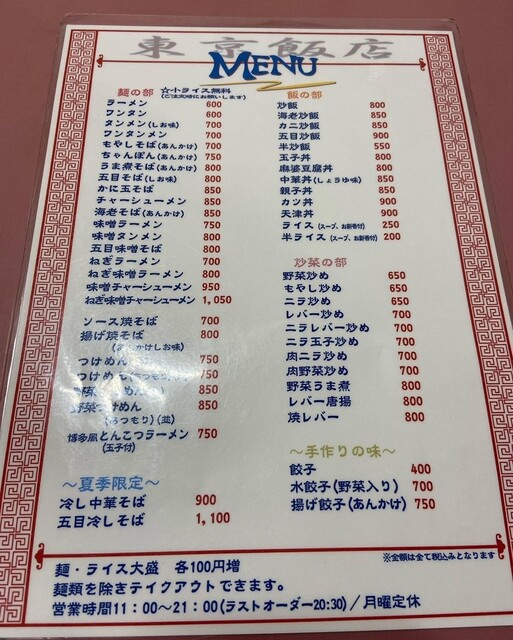 東京飯店
MENU
麺の部 ☆小ライス無料
(ご注文時にお願いします)
ラーメン 600
ワンタン 600
タンメン(しお味) 700
ワンタンメン 700
もやしそば(あんかけ) 700
ちゃんぽん(あんかけ) 750
うま煮そば(あんかけ) 800
五目そば(しお味) 800
かに玉そば 850
チャーシューメン 850
海老そば(あんかけ) 850
味噌ラーメン 750
味噌タンメン 800
五目味噌そば 800
ねぎラーメン 700
ねぎ味噌ラーメン 800
味噌チャーシューメン 950
ねぎ味噌チャーシューメン 1,050
ソース焼そば 700
揚げ焼そば 800
(あんかけしお味)
つけめん 750
つけめん 750
850
野菜つけめん 850
(あつもり)(並)
博多風とんこつラーメン 750
(玉子付)
～夏季限定～
冷し中華そば 900
五目冷しそば 1,100
飯の部
炒飯 800
海老炒飯 850
カニ炒飯 850
五目炒飯 900
半炒飯 550
玉子丼 800
麻婆豆腐丼 800
中華丼(しょうゆ味) 850
親子丼 850
カツ丼 900
天津丼 900
ライス(スープ、お新香付) 250
半ライス(スープ、お新香付) 200
炒菜の部
野菜炒め 650
もやし炒め 650
ニラ炒め 650
レバー炒め 700
ニラレバー炒め 700
ニラ玉子炒め 700
肉ニラ炒め 700
肉野菜炒め 700
野菜うま煮 800
レバー唐揚 800
焼レバー 800
～手作りの味～
餃子 400
水餃子(野菜入り) 700
揚げ餃子(あんかけ) 750
※金額は全て税込みとなります
麺・ライス大盛 各100円増
麺類を除きテイクアウトできます。
営業時間11：00～21：00(ラストオーダー20:30)／月曜定休